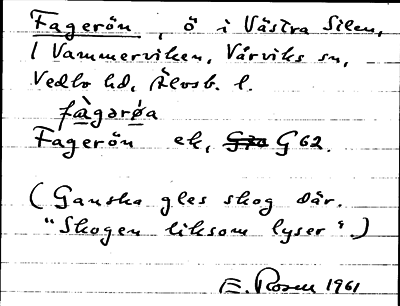 Fagerön, ö i Västra Silen,
/ Vammerviken, Vårviks sn,
Vedbo hd, Älvsb. l.
fàgərǿa
Fagerön ek, G 62.
(Ganska gles skog där.
"Skogen liksom lyser".)
E. Rosen 1961